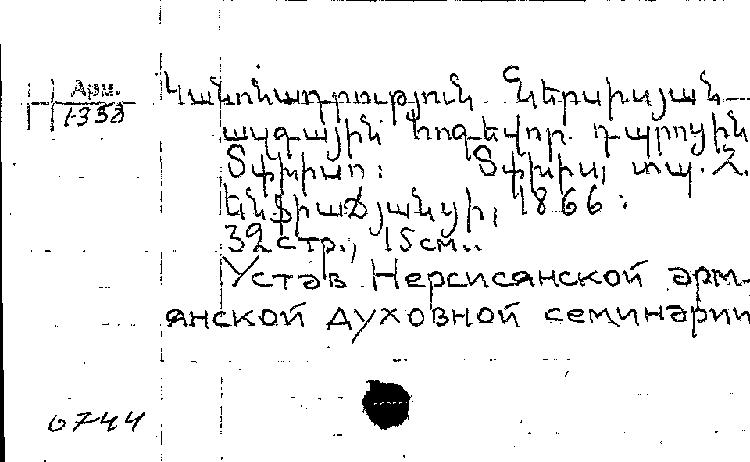 Арм.
1-358
Կանոնադրություն Ներսիսյան
ազգային հոգևոր. դպրոցին
Տփխիսո: Տփխիս, տպ. Հ.
Ենֆիաճյանցի, 1866:
32 стр., 15 см..
Устав Нерсисянской арм-
янской духовной семинарии
6744